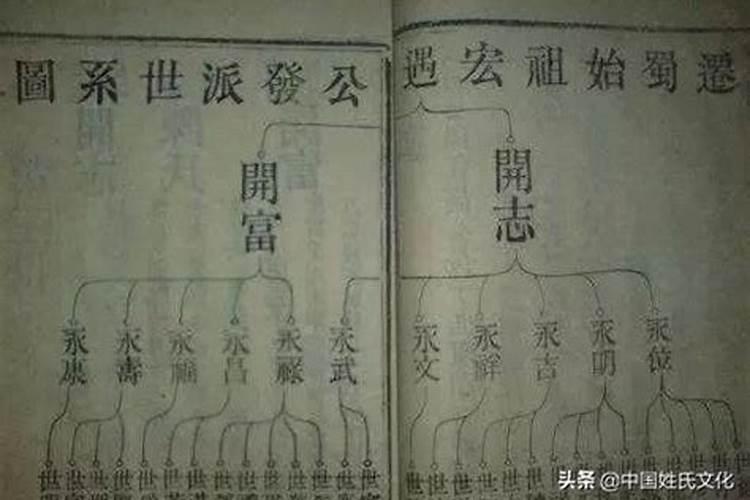 遷蜀始祖宏遇公發派世系圖
開志 開富
永位 永明 永吉 永祥 永文 永武 永祿 永昌 永福 永壽 永康
世 世 世 世 世 世 世 世 世 世 世 世 世 世 世 世 世 世 世 世 世 世 世 世 世 世
头条 @中国姓氏文化